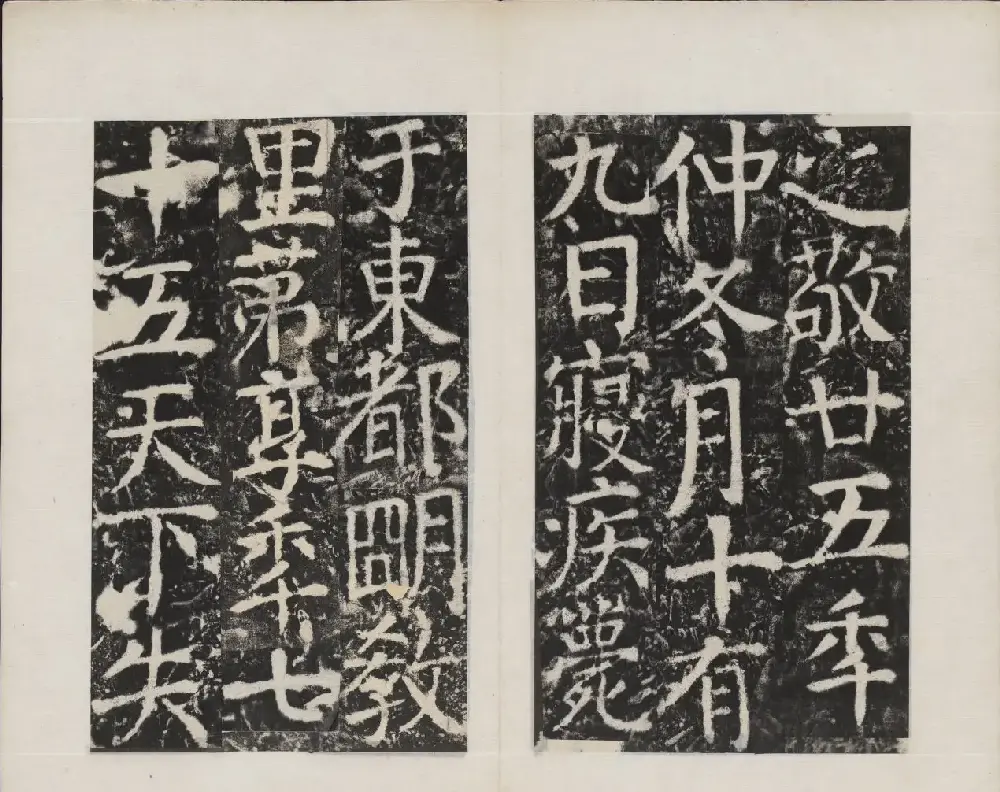 之敬廿五秊
仲冬月十有
九日寢疾薨
于東都明教
里第享秊七
十五天下失